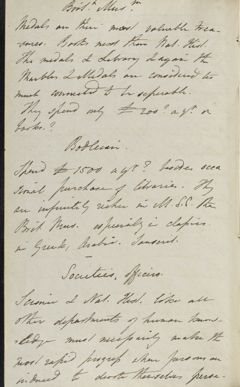 Brit.h Mus.m
Medals are their most valuable trea-
sures. Books next then Nat. Hist.
The medals & Library & again the
Marbles & Medals are considered too
much connected to be separable.
They spend only £200? a yr. on
books?
Bodleian.
Spend £1500 a yr? besides occa
sional purchase of libraries. They
are infinitely richer in MSS. than
Brit Mus. especially in classics
in Greek, Arabic, Sanscrit.
Societies, officers.
Science & Nat. Hist. like all
other departments of human know-
ledge must necessarily make the
most rapid progress when persons are
induced to devote themselves